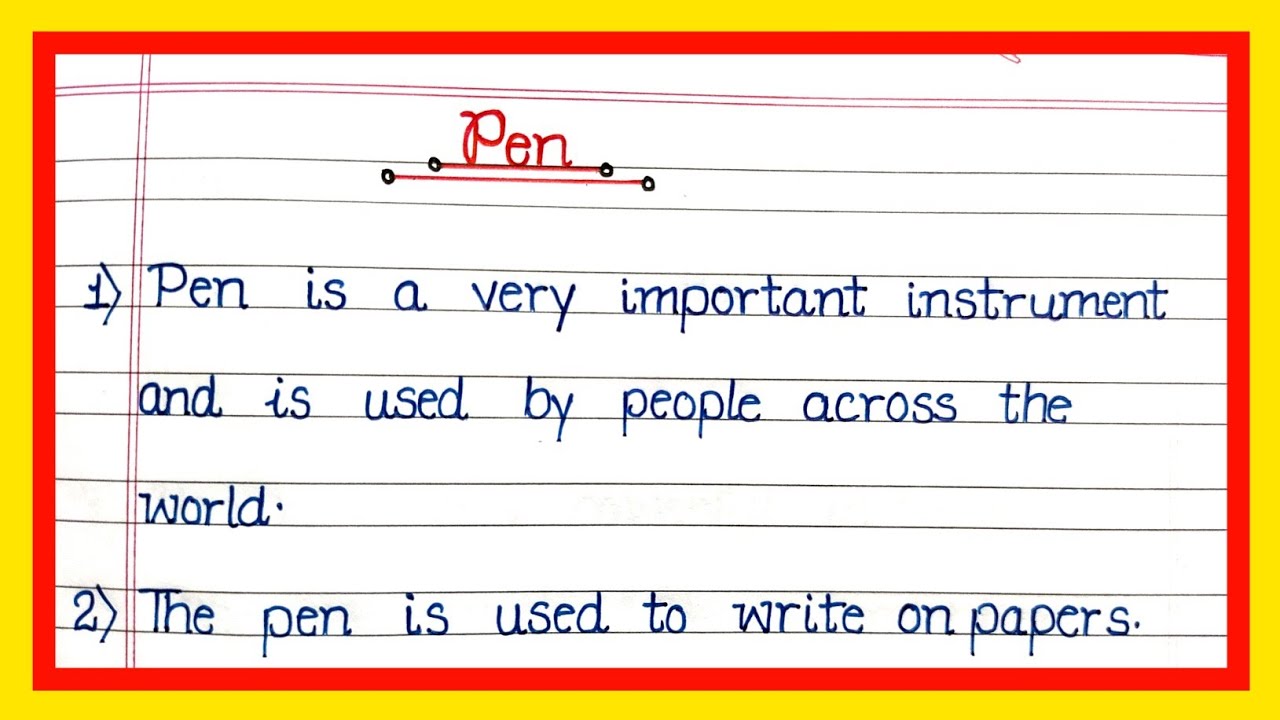 Pen
1) Pen is a very important instrument
and is used by people across the
world.
2) The pen is used to write on papers.